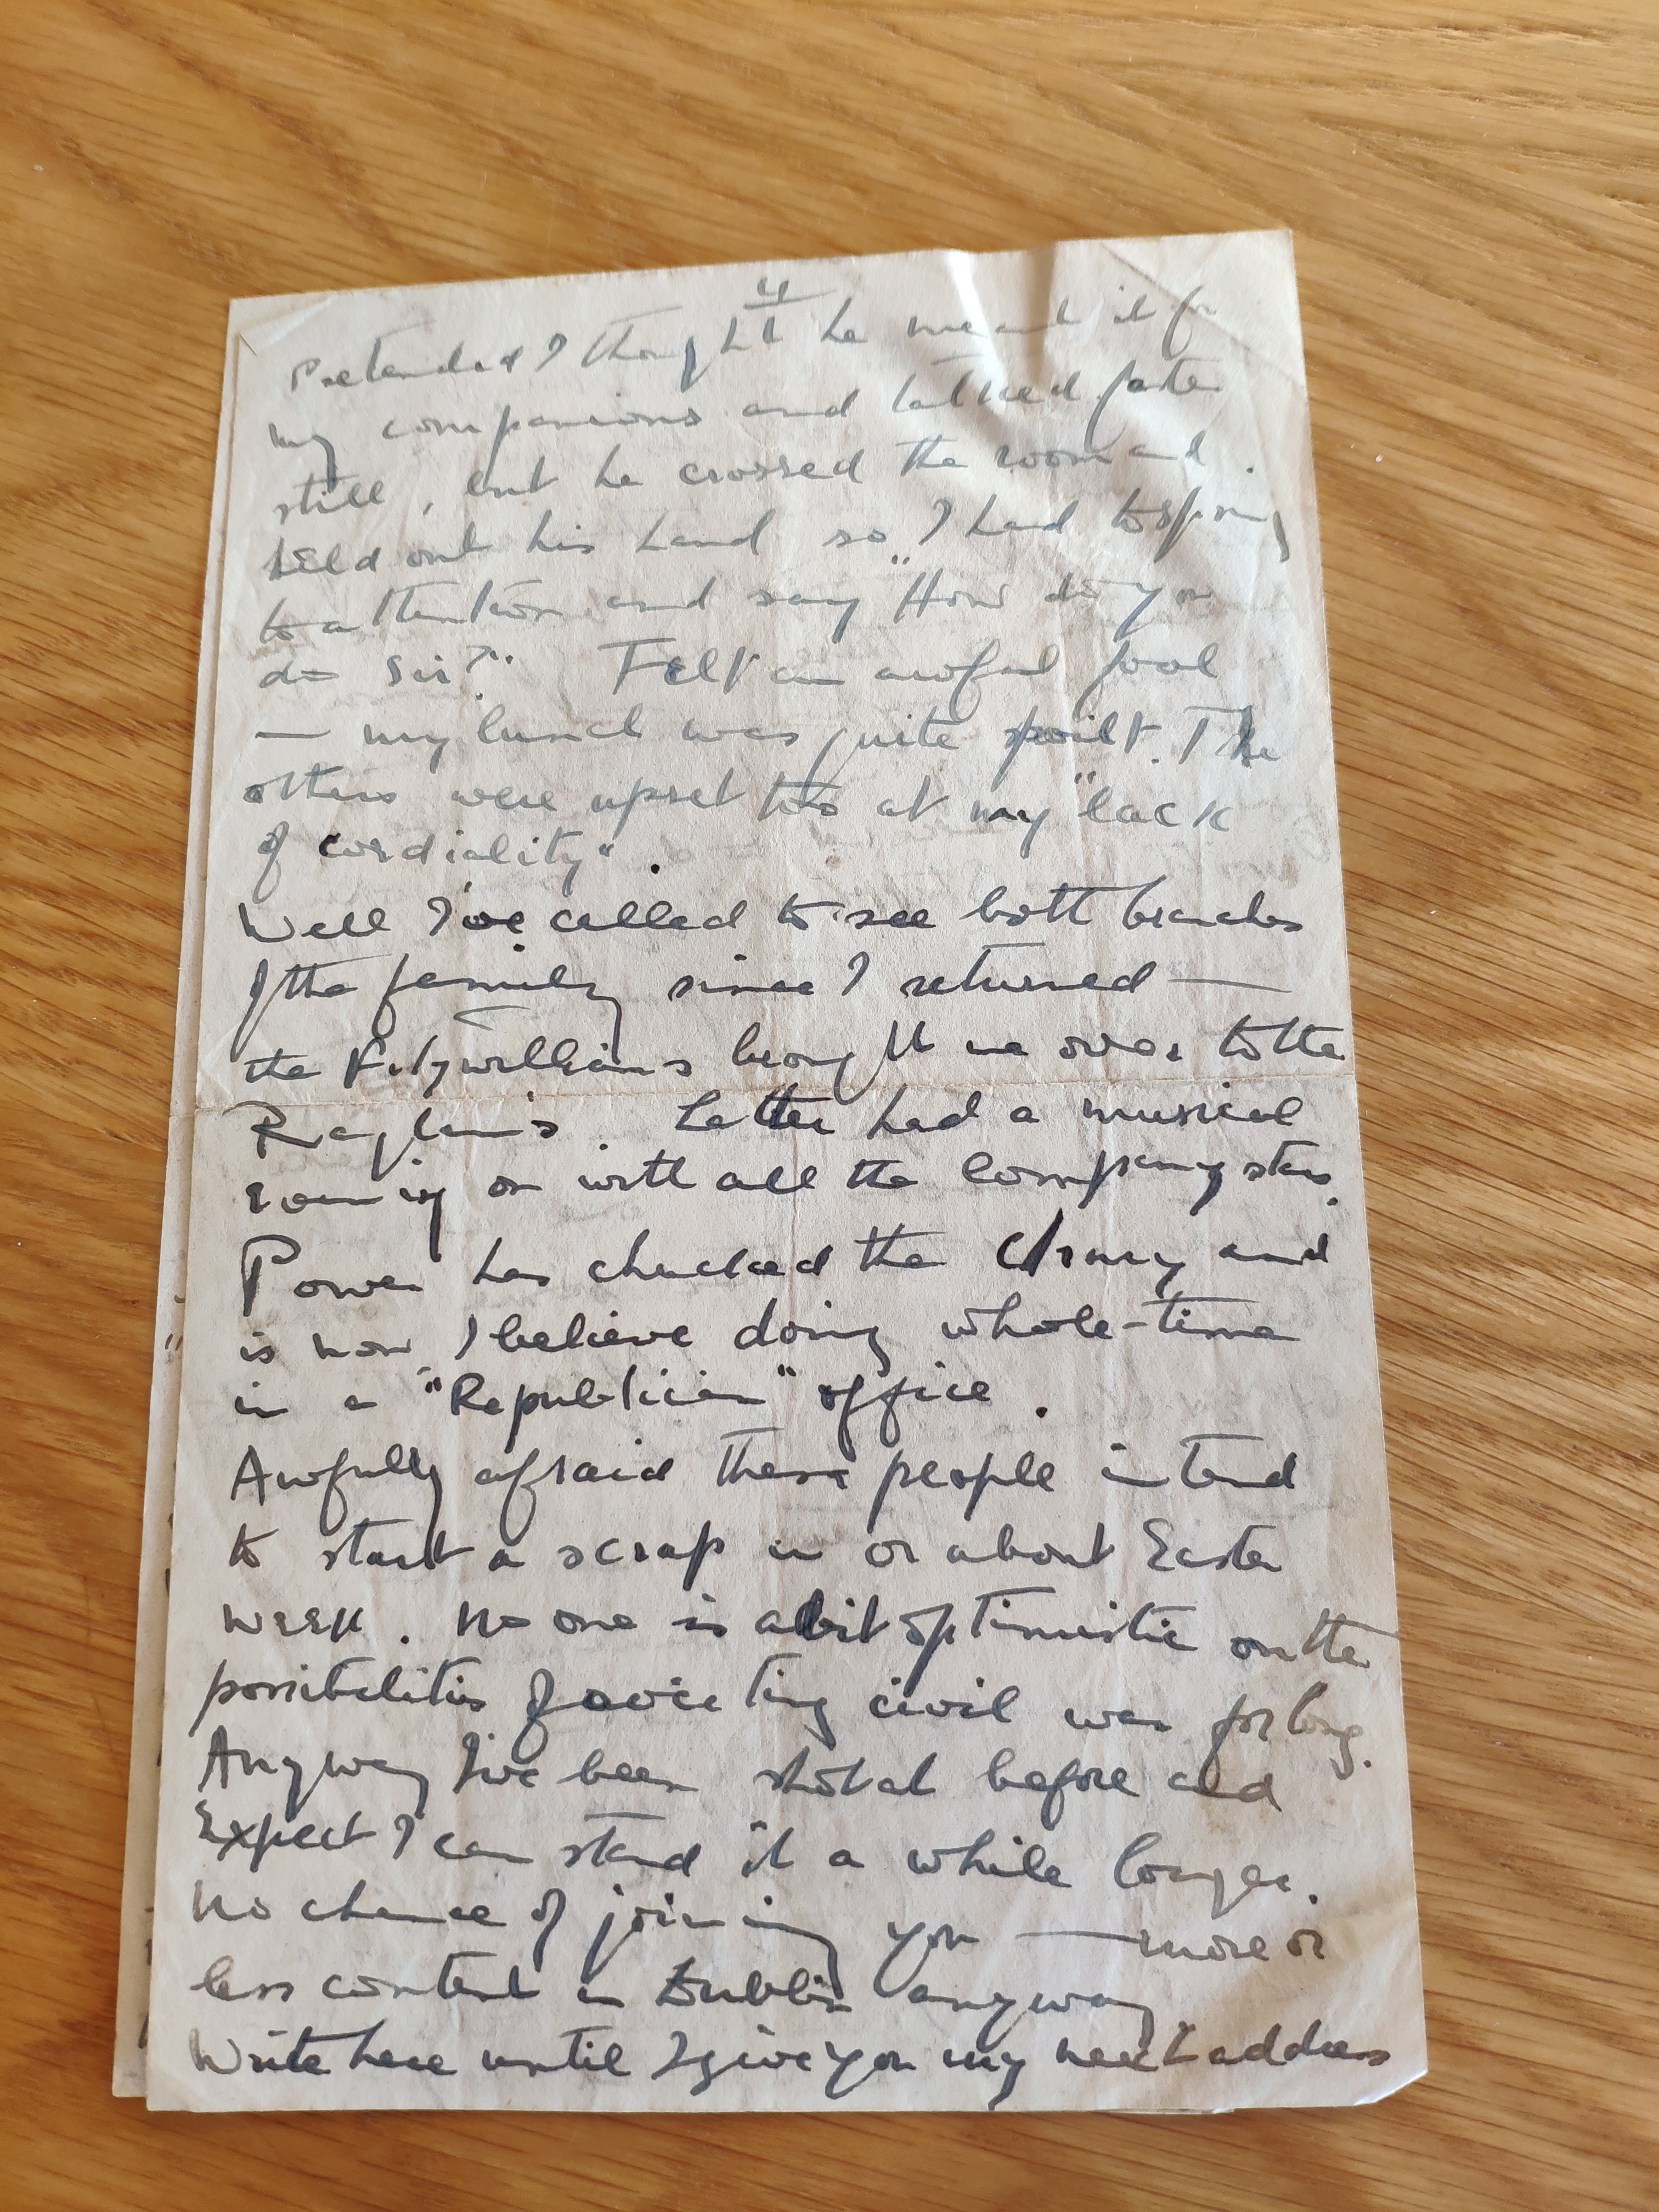 4
Pretended I thought he meant it for
my companions and talked faster
still, but he crossed the room and
held out his hand so I had to spring
to attention and say "How do you
do Sir?" Felt an awful fool
— my lunch was quite spoilt. The
others were upset too at my "lack
of cordiality".
Well I've called to see both branches
of the family since I returned —
the Fitzwilliams brought me over to the
Raglan's. Latter had a musical
evening on with all the Company stars.
Power has chucked the Army and
is now I believe doing whole-time
in a "Republican" office.
Awfully afraid these people intend
to start a scrap in or about Easter
week. No one is a bit optimistic on the
possibilities of averting civil war for long.
Anyway I've been shot at before and
Expect I can stand it a while longer.
No chance of joining you — more or
less content in Dublin anyway
Write here until I give you my next address